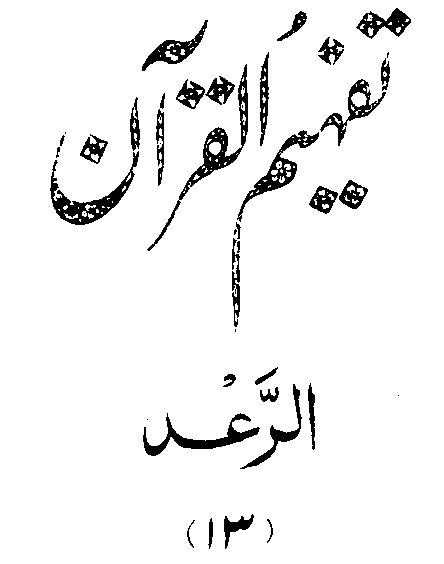 تفہیم القرآن
الرَّعْد
(۱۳)